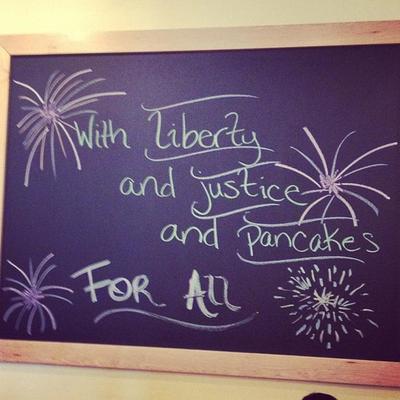 With Liberty
and justice
and pancakes
FOR All